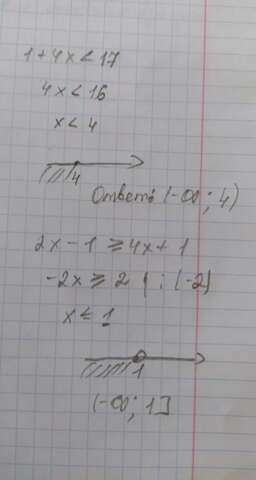 1 + 4x < 17
4x < 16
x < 4
4
Ответ: (-∞; 4)
2x - 1 ≥ 4x + 1
-2x ≥ 2 | : (-2)
x ≤ 1
1
(-∞; 1]